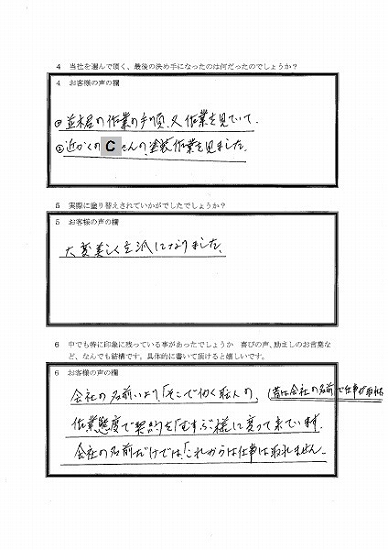 4 当社を選んで頂く、最後の決め手になったのは何だったのでしょうか？
4 お客様の声の欄
作業の手順、又作業を見ていて、
近かくのCさんの、塗装作業を見ました。
5 実際に塗り替えされていかがでしたでしょうか？
5 お客様の声の欄
大変美しく立派になりました。
6 中でも特に印象に残っている事があったでしょうか 喜びの声、励ましのお言葉な
ど、なんでも結構です。具体的に書いて頂けると嬉しいです。
6 お客様の声の欄
会社の名前より、「そこで働く職人の、(昔は会社の名前で仕事が取れた
作業態度で契約を「むすぶ様に変って来ています。
会社の名前だけでは「これからは仕事は取れません。